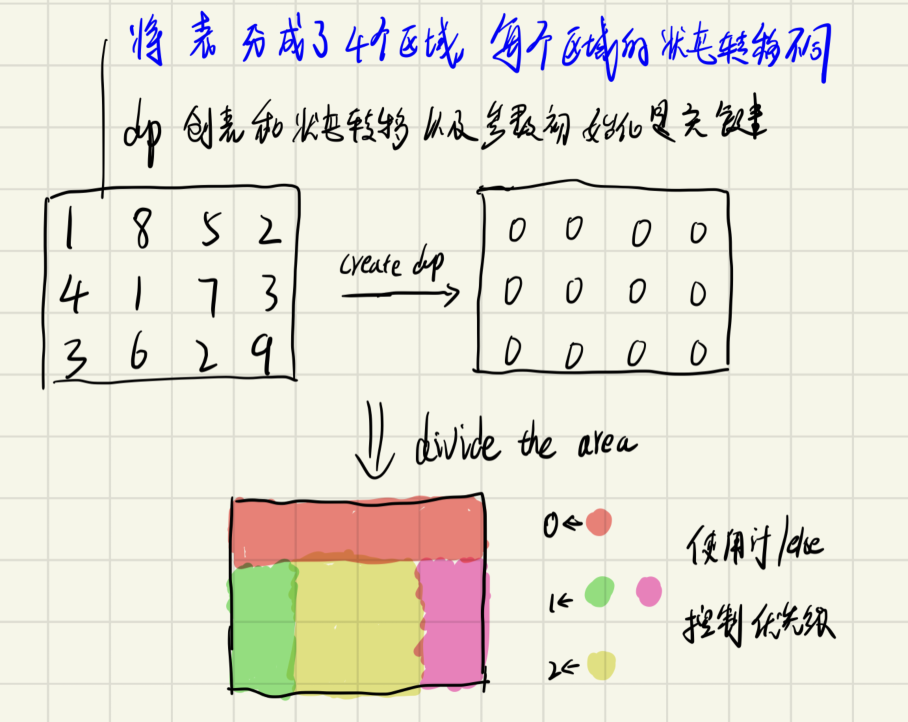 将表分成了4个区域,每个区域的状态转移不同
dp 创表和状态转移以及参数初始化是关键
1 8 5 2
4 1 7 3
3 6 2 9
create dp
0 0 0 0
0 0 0 0
0 0 0 0
divide the area
0←
1←
2←
使用if/else
控制优先级